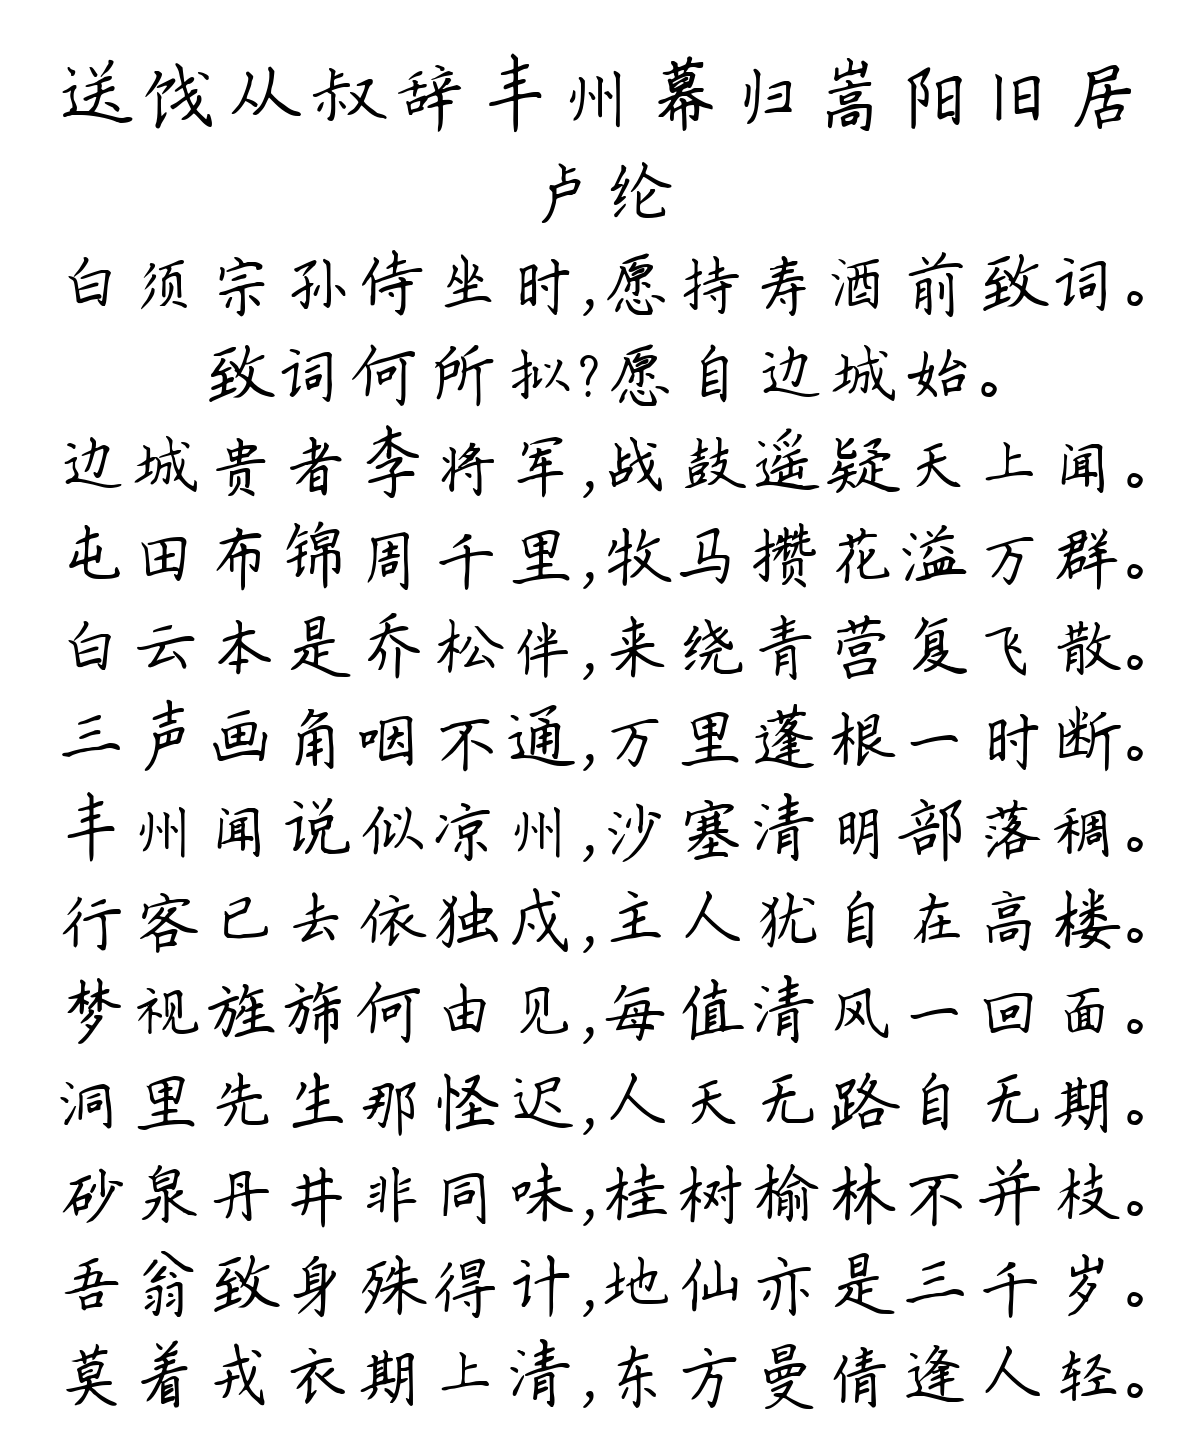 送饯从叔辞丰州幕归嵩阳旧居
卢纶
白须宗孙侍坐时,愿持寿酒前致词。
致词何所拟?愿自边城始。
边城贵者李将军,战鼓遥疑天上闻。
屯田布锦周千里,牧马攒花溢万群。
白云本是乔松伴,来绕青营复飞散。
三声画角咽不通,万里蓬根一时断。
丰州闻说似凉州,沙塞清明部落稠。
行客已去依独戍,主人犹自在高楼。
梦视旌旆何由见,每值清风一回面。
洞里先生那怪迟,人天无路自无期。
砂泉丹井非同味,桂树榆林不并枝。
吾翁致身殊得计,地仙亦是三千岁。
莫着戎衣期上清,东方曼倩逢人轻。